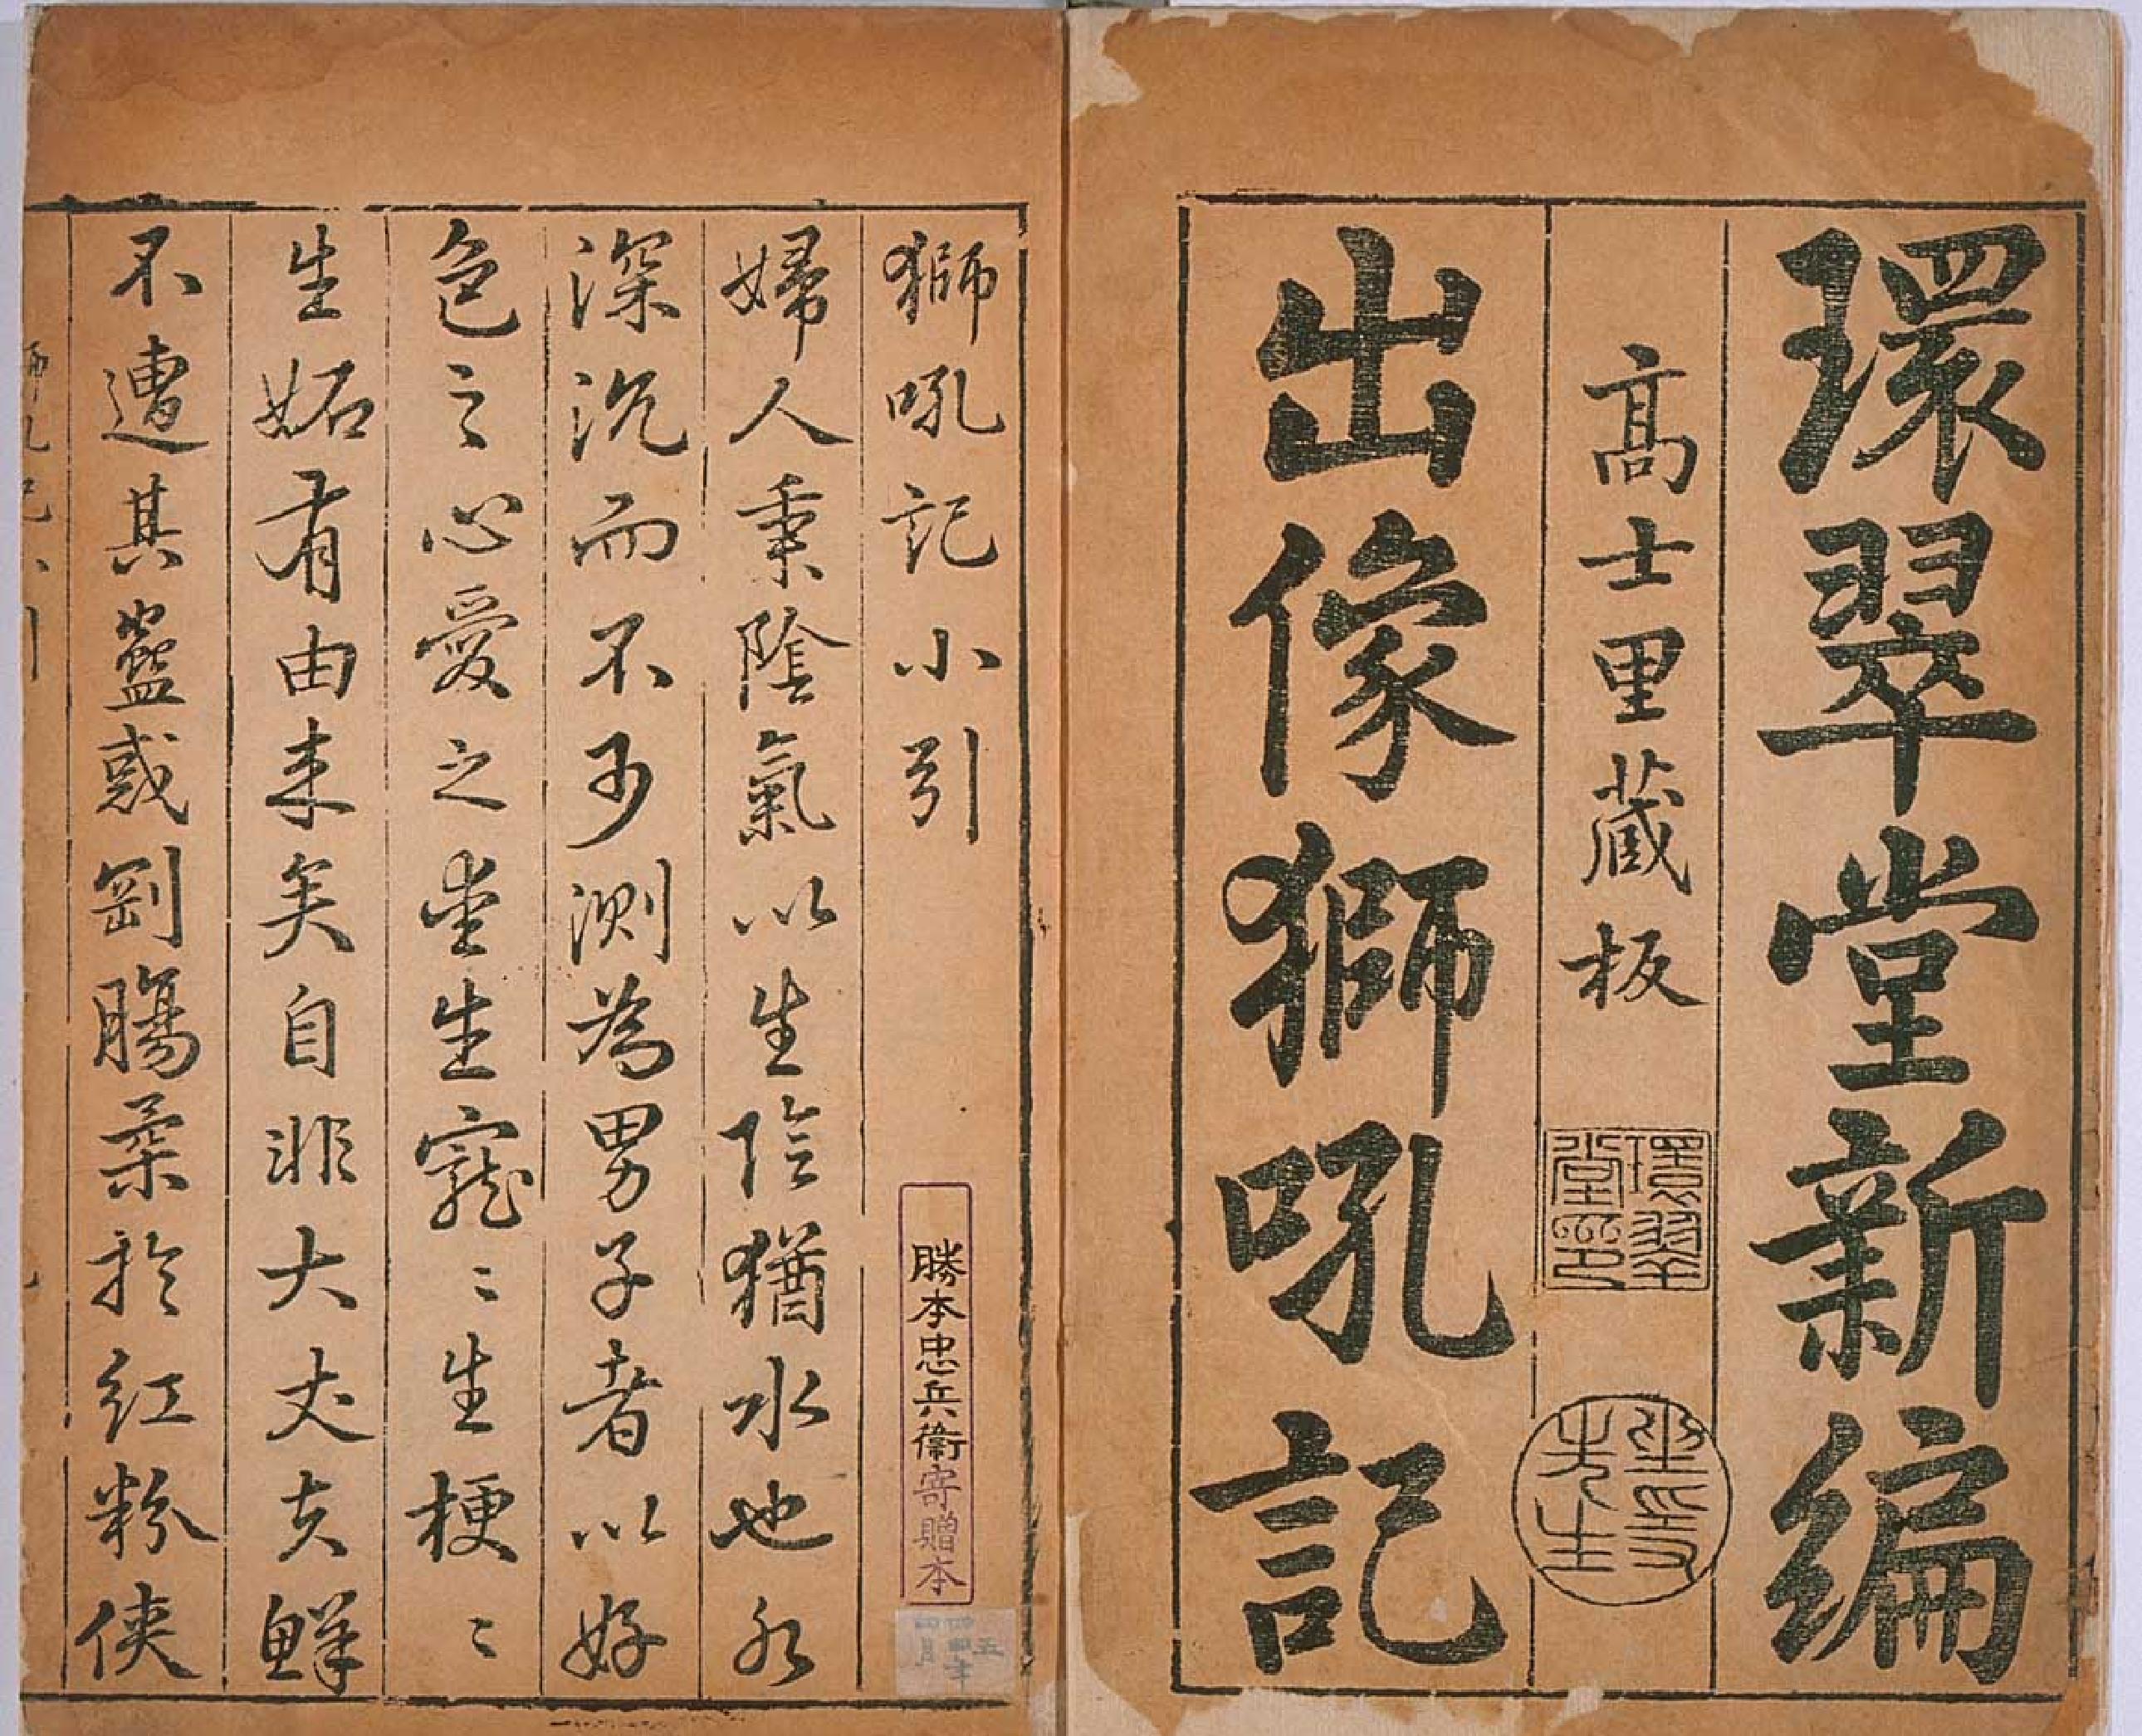 環翠堂新編
高士里藏板
環翠堂印
坐隱先生
出像獅吼記
獅吼記小引
勝本忠兵衞寄贈本
婦人秉陰氣以生陰猶水也水
深沉而不可測為男子者以好
色之心愛之愛生寵〻生梗〻
生妬有由来矣自非大丈夫鮮
不遭其蠱惑剛腸柔於紅粉俠